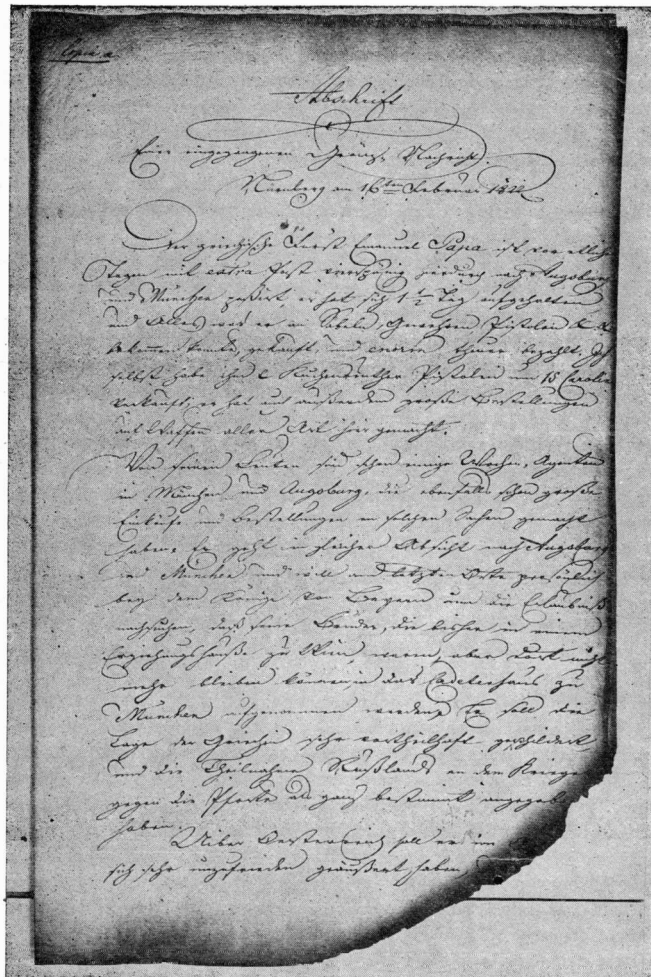 Copia
Abschrift
Einer eingegangenen Nachricht.
Nürnberg am 16ten Februar 1822
Der griechische Fürst Emanuel Papa ist vor etlichen
Tagen mit extra Post vierspännig hierdurch nach Augsburg
und München passirt er hat sich 1 ½ Tag aufgehalten
und Alles was er an Säbeln, Gewehren Pistolen
bekommen konnte, gekauft, und enorm theuer bezahlt. Ich
selbst habe ihm Kuchenreuther Pistolen um 15 Carolin
verkauft, er hat auch außerdem große Bestellungen
auf Waffen aller Art hier gemacht.
Von seinen Leuten sind schon einige Wochen, Agenten
in München und Augsburg, die ebenfalls schon große
Einkäufe und Bestellungen in solchen Sachen gemacht
haben. Er geht in gleicher Absicht nach Augsburg
und München und will am letzten Orte persönlich
bey dem Könige von Bayern um die Erlaubniß
nachsuchen, daß seine Brüder, die bisher in einem
Erziehungshause zu Wien waren, aber dort nicht
mehr bleiben können, in das Cadetenhaus zu
München aufgenommen werden. Er soll die
Lage der Griechen sehr vortheilhaft geschildert
und die Theilnahme Rußlands an dem Kriege
gegen die Pforte als ganz bestimmt
haben.
Uiber Oesterreich soll er im
sich sehr unzufrieden geäußert haben,